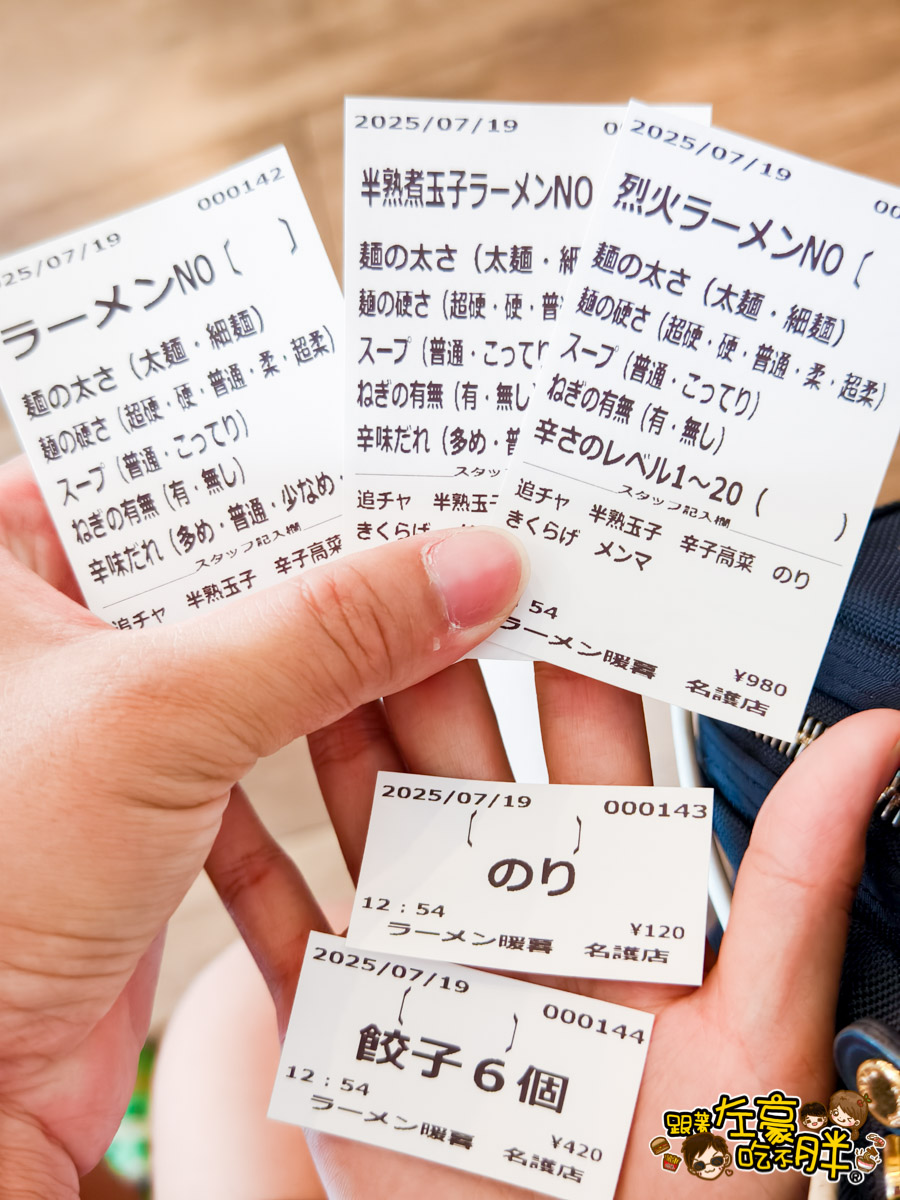 25/07/19 000142
ラーメンNO〔 〕
麺の太さ（太麺・細麺）
麺の硬さ（超硬・硬・普通・柔・超柔）
スープ（普通・こってり）
ねぎの有無（有・無し）
辛味だれ（多め・普通・少なめ・
スタッフ記入欄
追チャ 半熟玉子 辛子高菜
2025/07/19 0
半熟煮玉子ラーメンNO
麺の太さ（太麺・細
麺の硬さ（超硬・硬・普
スープ（普通・こって
ねぎの有無（有・無し
辛味だれ（多め・普
スタッ
追チャ 半熟玉子
きくらげ
2025/07/19 00
烈火ラーメンNO〔
麺の太さ（太麺・細麺）
麺の硬さ（超硬・硬・普通・柔・超柔）
スープ（普通・こってり）
ねぎの有無（有・無し）
辛さのレベル1～20（ ）
スタッフ記入欄
追チャ 半熟玉子 辛子高菜 のり
きくらげ メンマ
:54
¥980
ラーメン暖暮 名護店
2025/07/19 000143
〔 〕
のり
12:54
¥120
ラーメン暖暮 名護店
2025/07/19 000144
〔 〕
餃子6個
12:54
¥420
ラーメン暖暮 名護店
跟著左豪
吃不胖
®